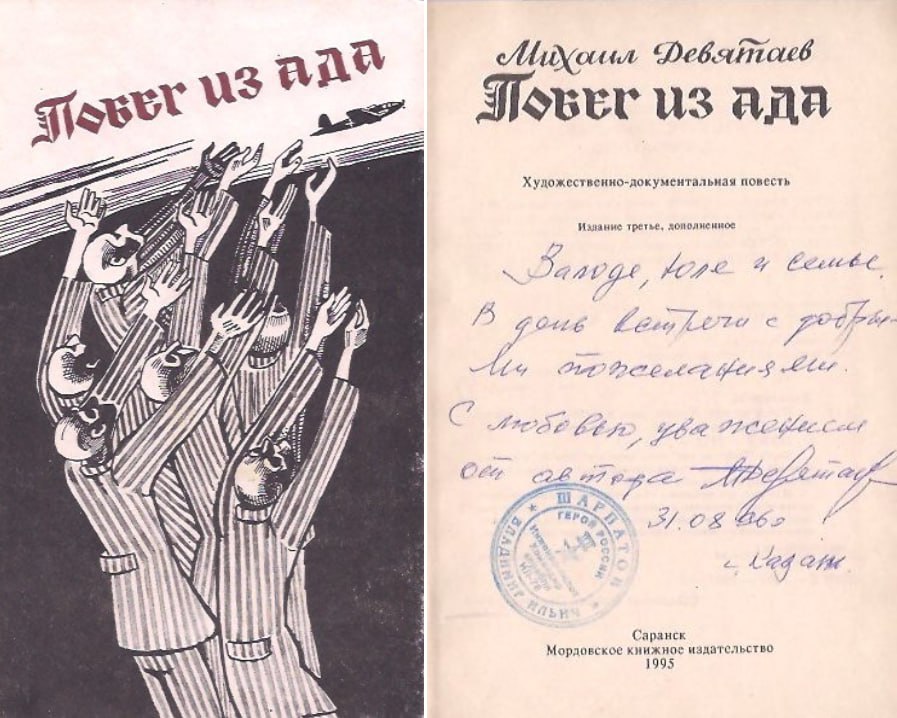 Побег из ада
Михаил Девятаев
Побег из ада
Художественно-документальная повесть
Издание третье, дополненное
Валоде, Юле и семье.
В день встречи с добры-
ми пожеланиями.
С любовью, уважением
от автора МДевятаев
31.08.96г
г. Казань.
★ ШАРПАТОВ ★ ВЛАДИМИР ИЛЬИЧ
ГЕРОЙ РОССИИ
Саранск
Мордовское книжное издательство
1995